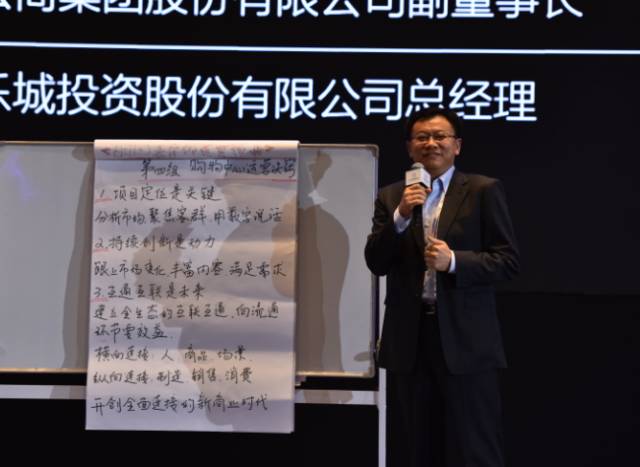 商集团股份有限公司副董事长
乐城投资股份有限公司总经理
第四组 购物中心运营诀窍
1. 项目定位是关键
分析市场,聚集客群,用数字说话
2. 持续创新是动力
跟上市场变化,丰富内容 满足需求
3. 互通互联是未来
建立全生态的互联互通,向流通
环节要效益.
横向连接:人、商品、场景、
纵向连接:制造 销售、消费
开创全面连接的新商业时代